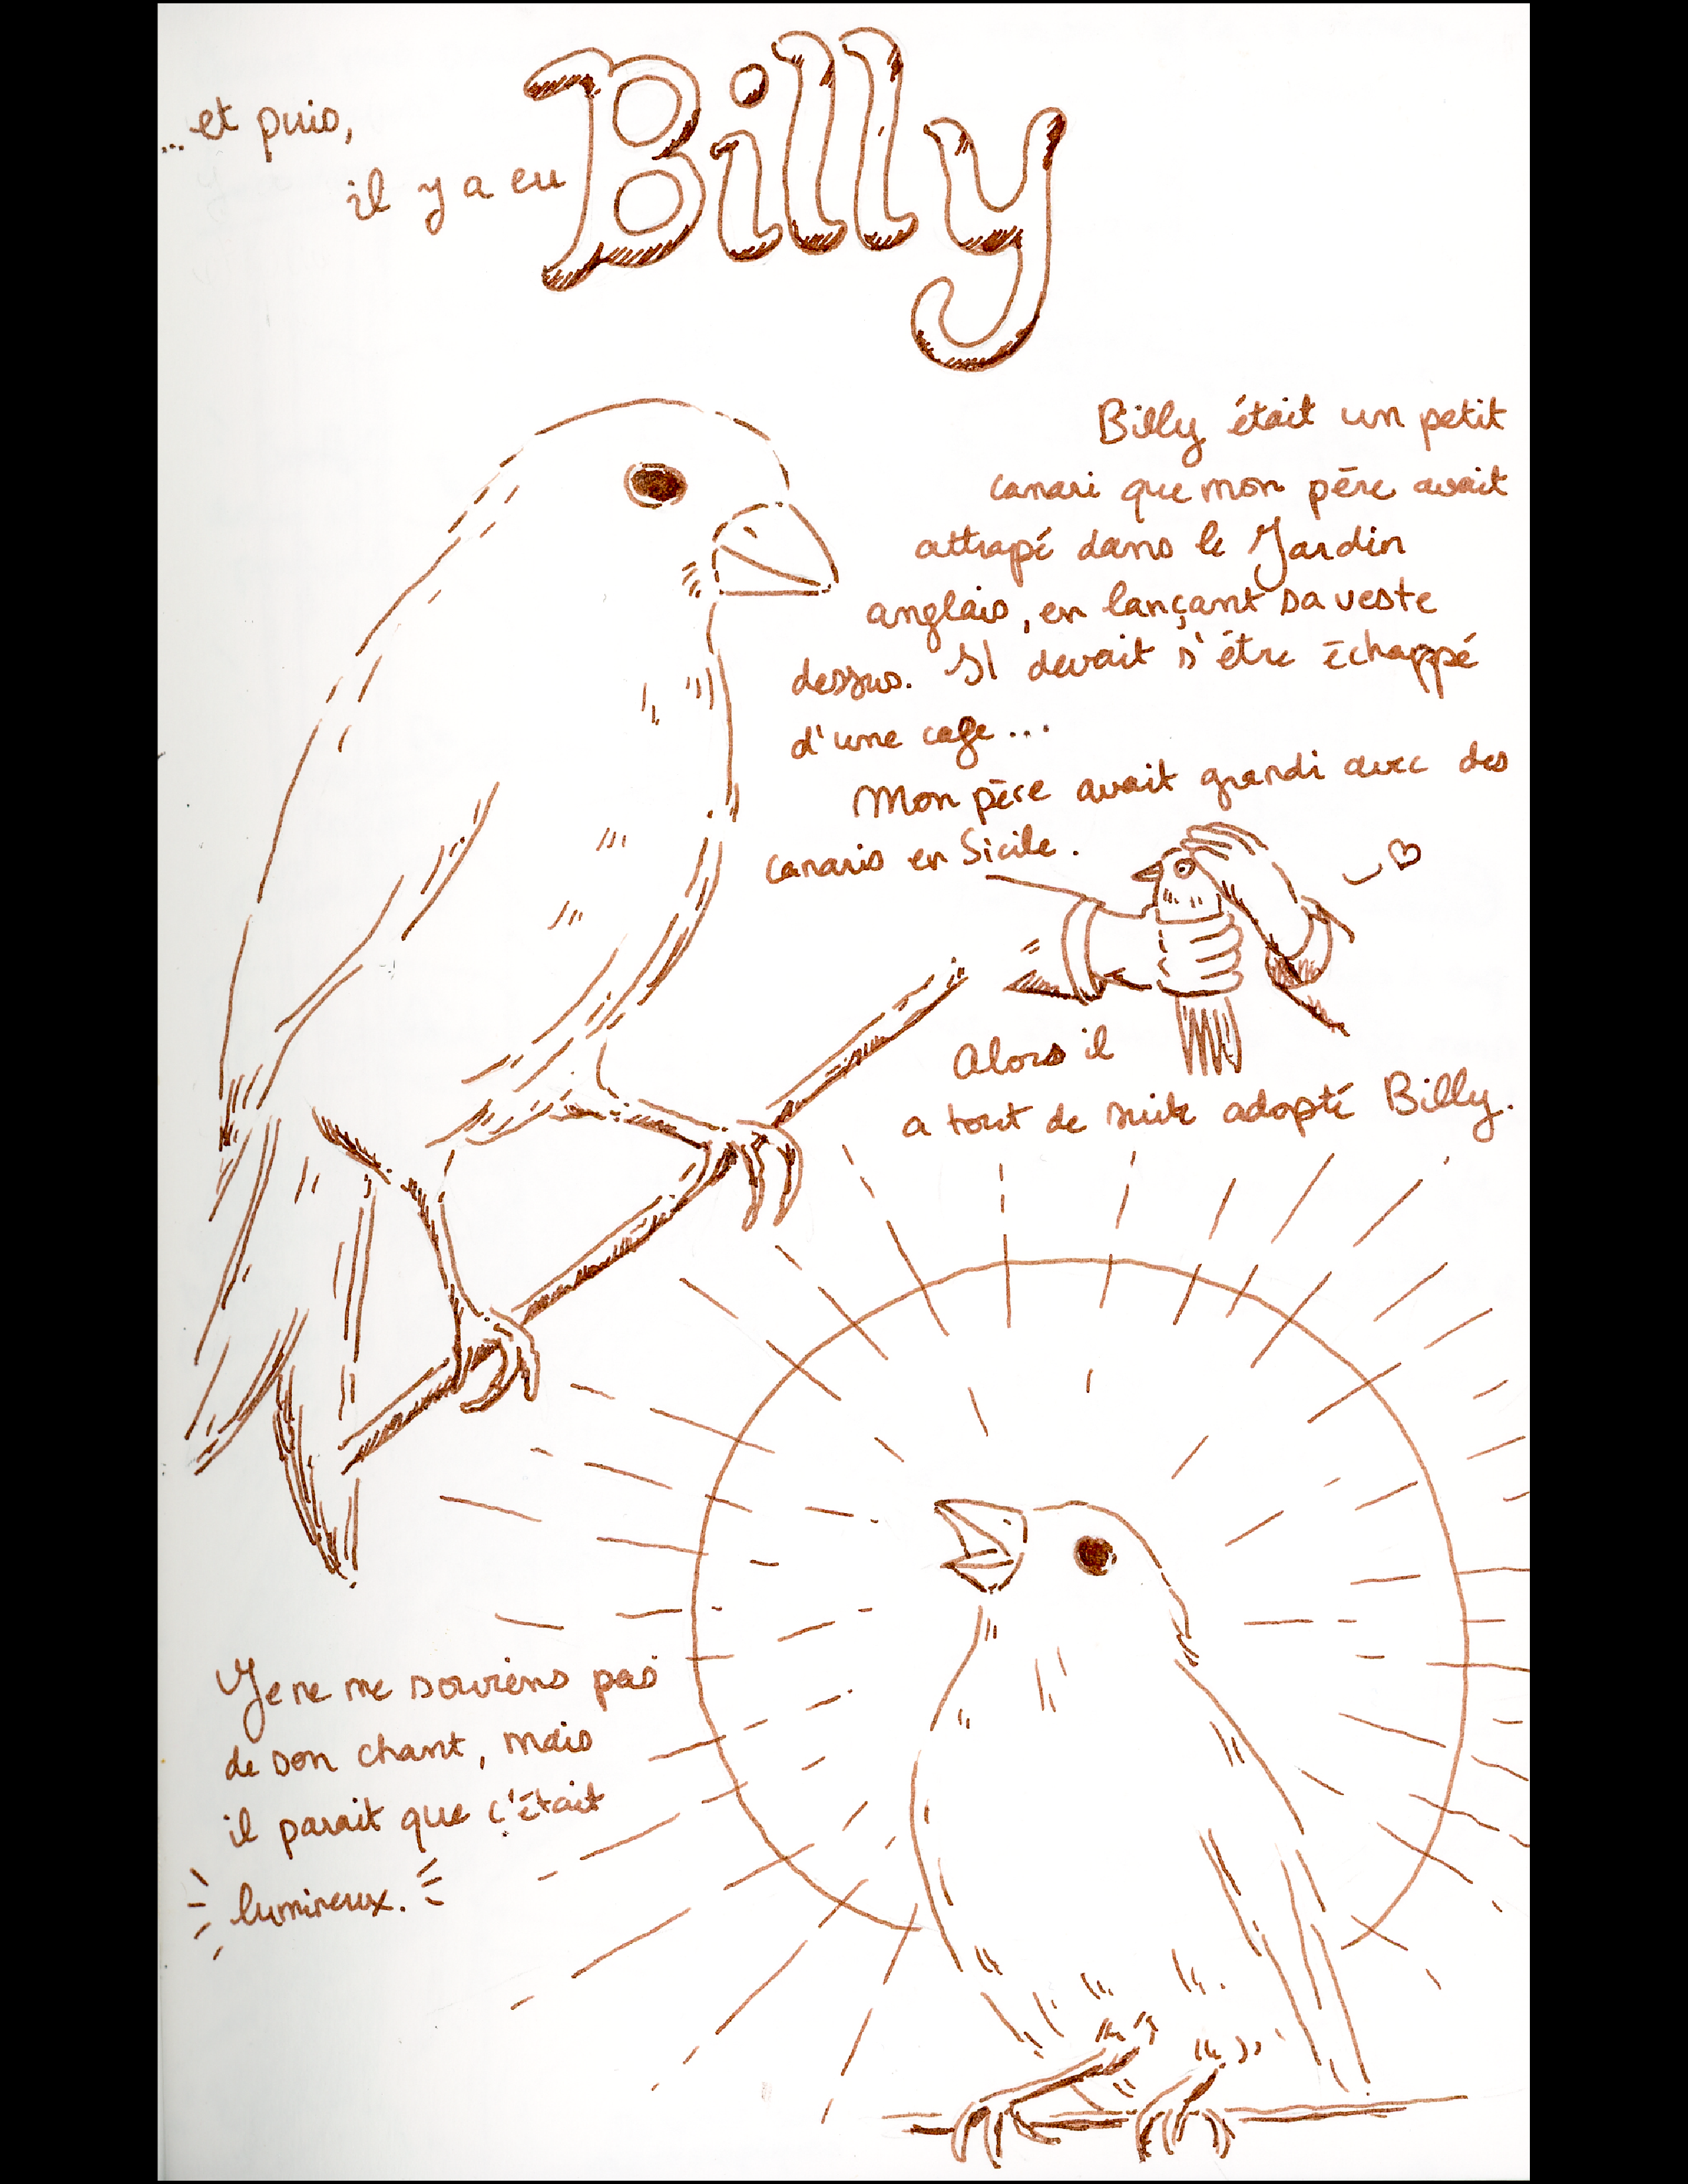 ...et puis,
il y a eu Billy
Billy était un petit
canari que mon père avait
attrapé dans le Jardin
anglais, en lançant sa veste
dessus. Il devait s'être échappé
d'une cage...
Mon père avait grandi avec des
canaris en Sicile.
Alors il
a tout de suite adopté Billy.
Je ne me souviens pas
de son chant, mais
il parait que c'était
lumineux.